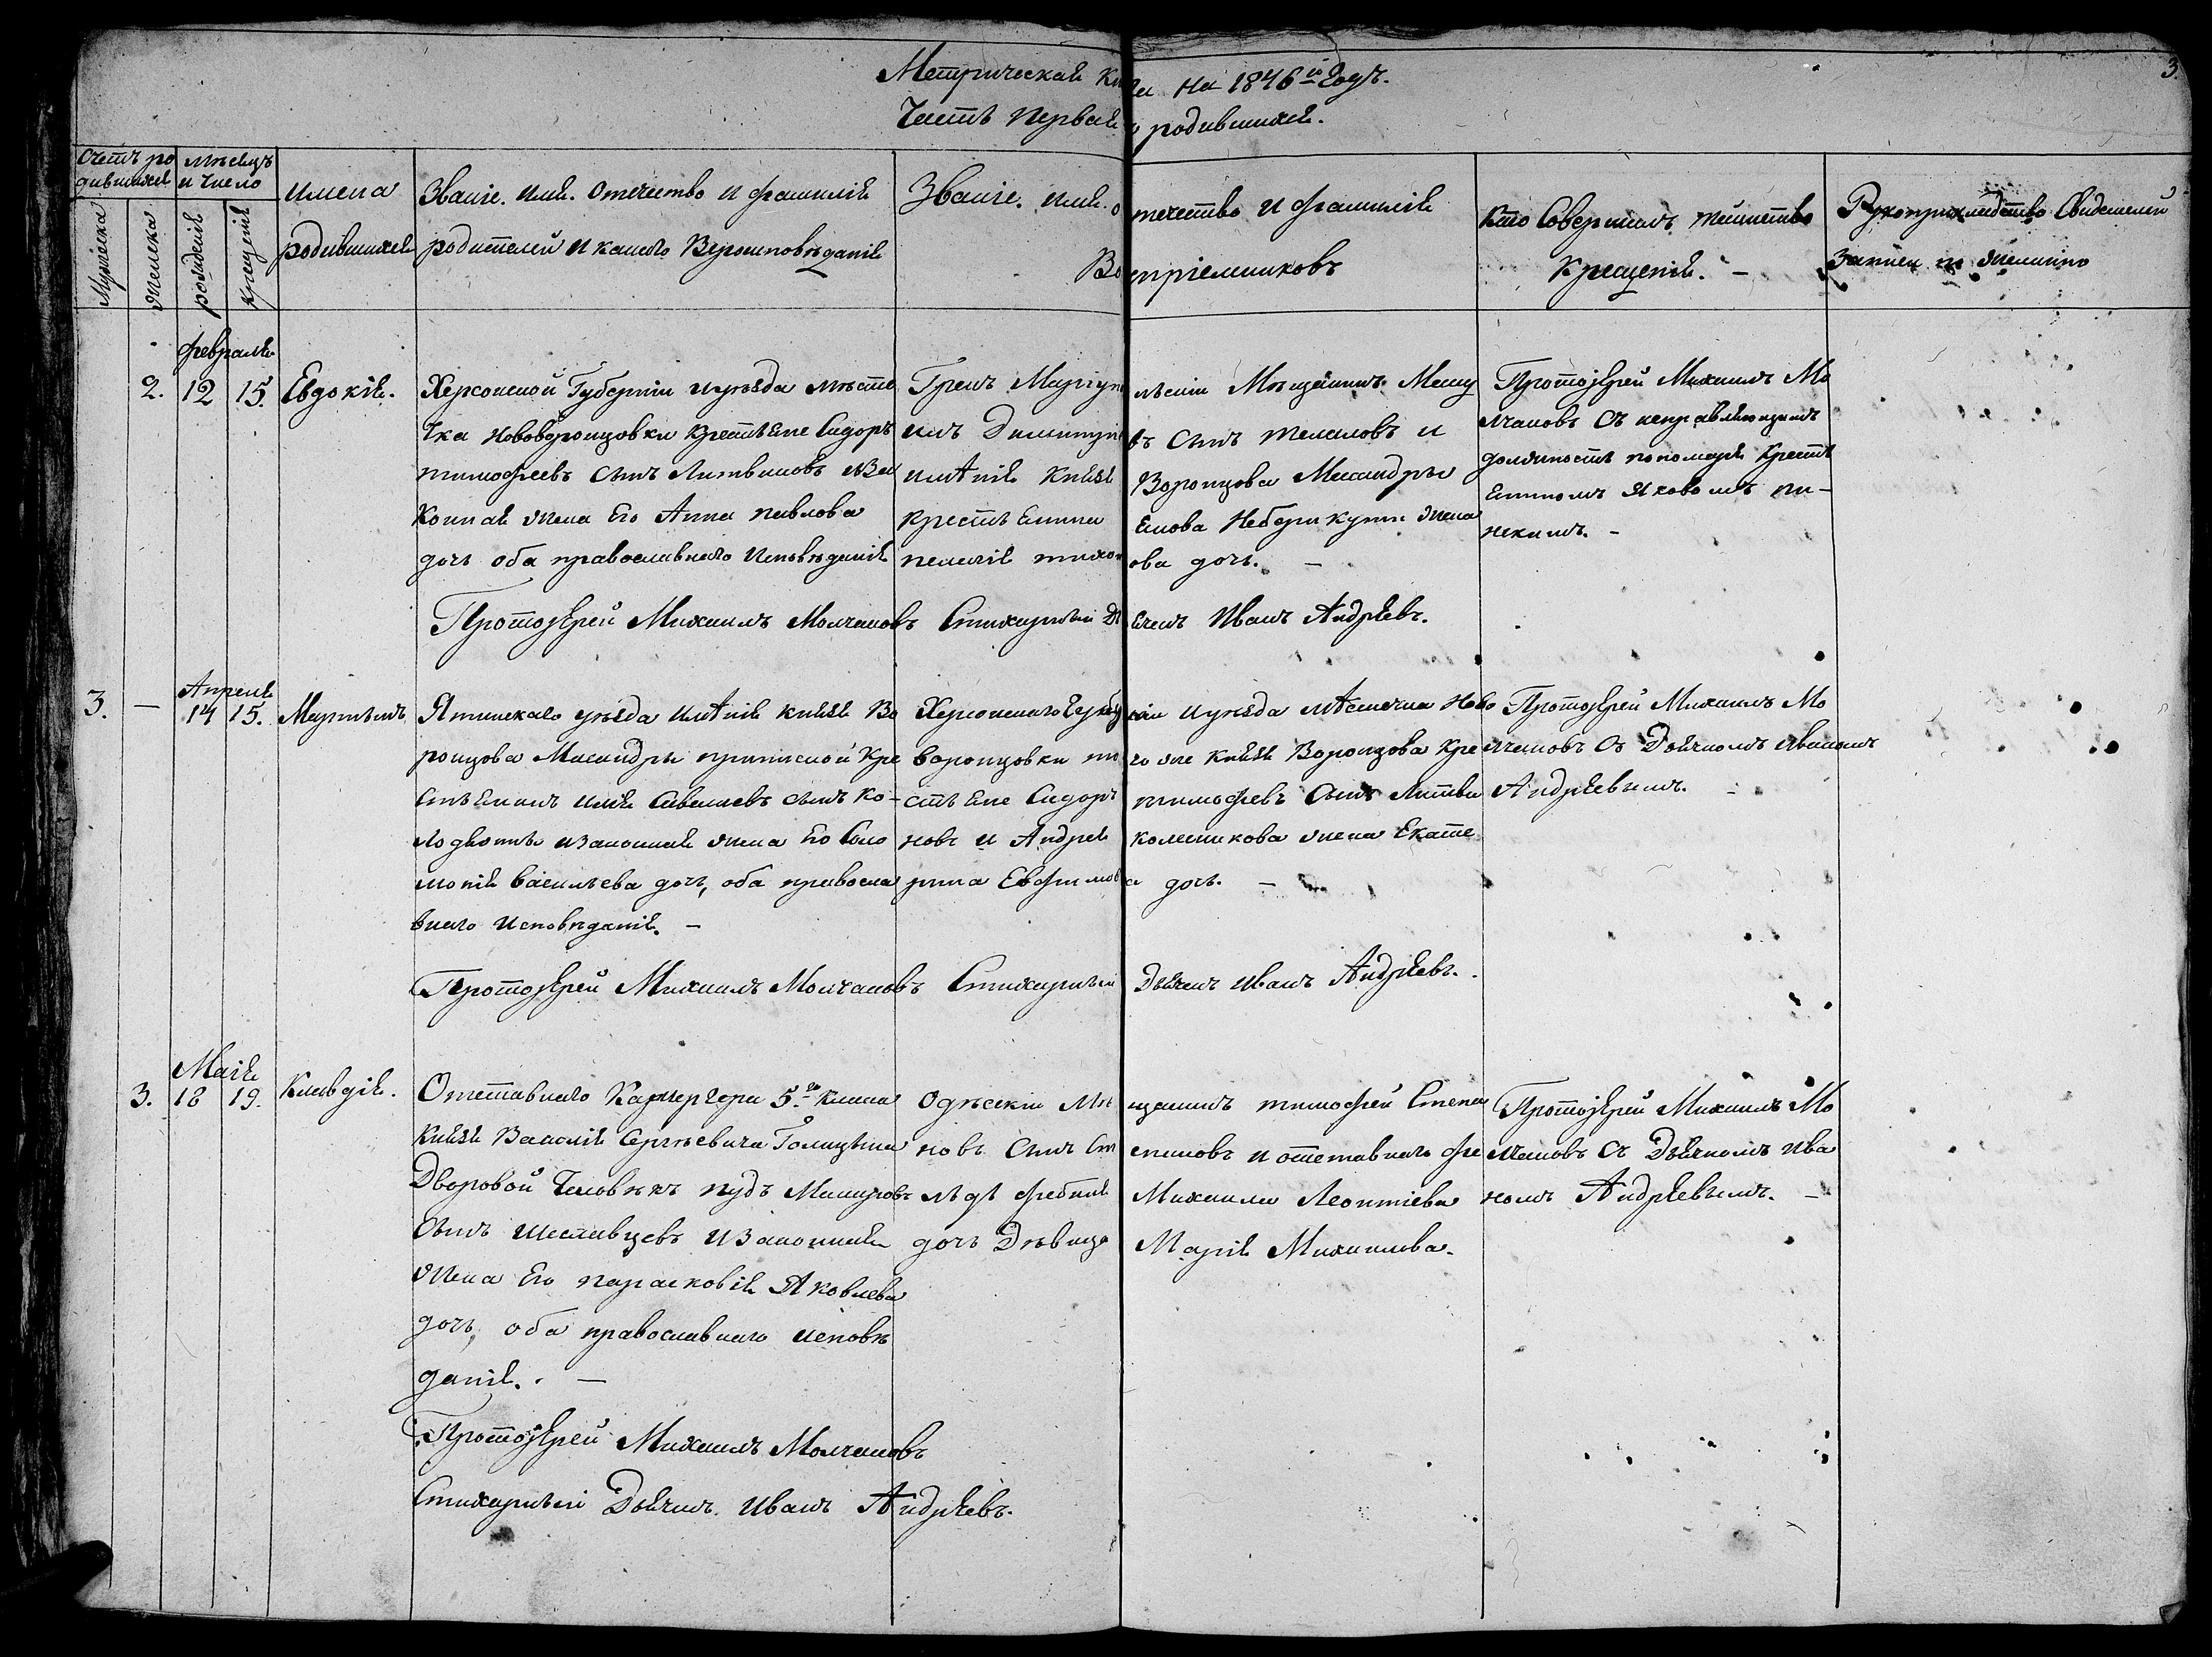 3.
Метрическая Кни га на 1846й Годъ.
Часть Первая о родившихся.
Счетъ ро
дившихся
Мѣсяцъ
и Число
Мужеска
Женска
рожденія
крещенія
имена
родившихся
Званіе. Имя. Отчество и фамилія
родителей и какого Вероисповѣданія
Званіе. Имя. о течество и фамилія
Во спріемниковъ
Кто Совершалъ таинство
Крещенія. –
Рукоприкладство Свидетелей
Записи по желанію
февраля
2. 12 15. Евдокія.
Херсонской Губерніи и уѣзда мѣсте
чка Нововоронцовки крестьяне Сидоръ
тимофеевъ сынъ Литвиновъ иЗа
Конная жена Его Анна павлова
дочь оба православнаго Исповѣданія
Грекъ Маріуп ольскій Мѣщанинъ
имъ Димитрі въ сынъ и
имѣнія Князя Воронцова Масандры
крестьянина жена
пелагія тихон ова дочь. –
Протоіерей Михаилъ Мо
лчановъ Съ исправляющимъ
должность пономаря Кресть
яниномъ Яковомъ
Протоіерей Михаилъ Молчановъ Стихарный Дь ячекъ Иванъ Андреевъ.
Апреля
3. – 14 15. Мартынъ
Ялтинскаго уѣзда имѣнія князя Во
ронцова Масандры приписной Кре
стьянинъ Илья Савельевъ сынъ Ко-
лодконная жена Его Соло
монія васильева дочь, оба правосла
внаго Исповѣданія. –
Херсонской Губер ніи и уѣзда мѣстечка Ново
воронцовки то го же Князя Воронцова кре
стьяне Сидоръ тимофеевъ Сынъ Литви
новъ и Андрея колесникова жена Екате
рина Евфимов а дочь. –
Протоіерей Михаилъ Мо
лчановъ съ Дьячкомъ Иваномъ
Андреевымъ. –
Протоіерей Михаилъ Молчановъ Стихарный Дьячекъ Иванъ Андреевъ.
Маія
3. 18 19. Клавдія.
Отставнаго Камергера 5го класса
Князя Василія Сергѣевича Голицына
Дворовой Человѣкъ
сынъ иЗаконная
жена Его парасковія Яковлева
дочь, оба православнаго исповѣ
данія. –
Одѣскій Мѣ щанинъ тимофей Степа
новъ Сынъ Ст епановъ и отставнаго фе
льдфебеля Михаила Леонтіева
дочь Дѣвица Марія Михайлова.
Протоіерей Михаилъ Мо
лчановъ Съ Дьячкомъ Ива
номъ Андреевымъ. –
Протоіерей Михаилъ Молчановъ
Стихарный Дьячекъ. Иванъ Андреевъ.